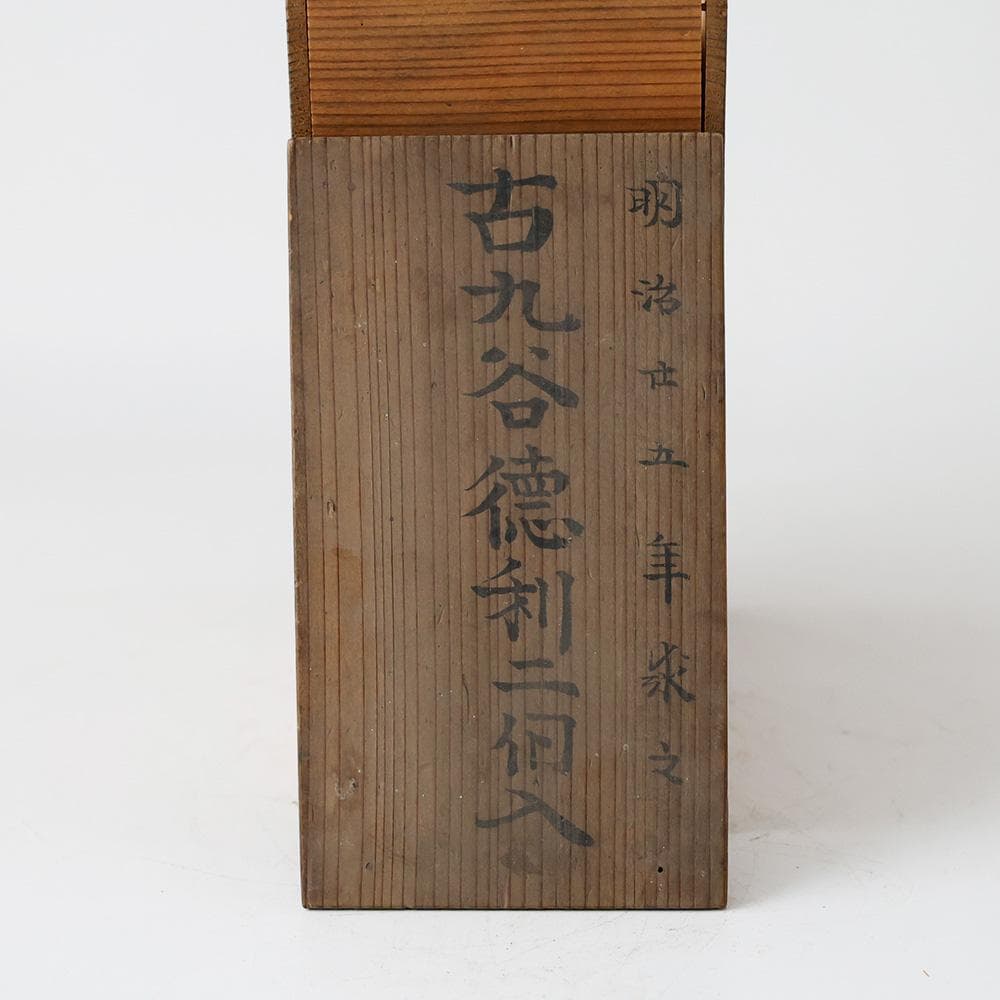 明治廿五年求之
古九谷徳利二個入